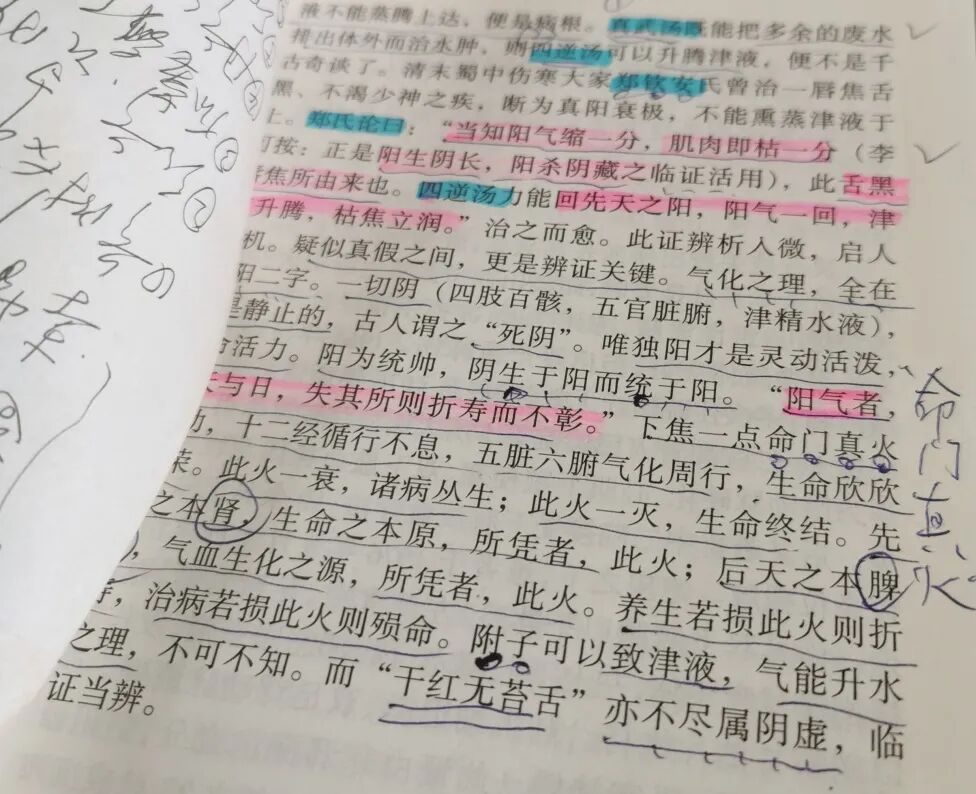 液不能蒸腾上达，便是病根。真武汤既能把多余的废水
排出体外而治水肿，则四逆汤可以升腾津液，便不是千
古奇谈了。清末蜀中伤寒大家郑钦安氏曾治一唇焦舌
黑、不渴少神之疾，断为真阳衰极，不能熏蒸津液于
上。郑氏论曰：“当知阳气缩一分，肌肉即枯一分（李
可按：正是阳生阴长，阳杀阴藏之临证活用），此舌黑
唇焦所由来也。四逆汤力能回先天之阳，阳气一回，津
升腾，枯焦立润。”治之而愈。此证辨析入微，启人
机。疑似真假之间，更是辨证关键。气化之理，全在
阳二字。一切阴（四肢百骸，五官脏腑，津精水液），
是静止的，古人谓之“死阴”。唯独阳才是灵动活泼，
命活力。阳为统帅，阴生于阳而统于阳。“阳气者，
天与日，失其所则折寿而不彰。”下焦一点命门真火
动，十二经循行不息，五脏六腑气化周行，生命欣欣
荣。此火一衰，诸病丛生；此火一灭，生命终结。先
之本肾，生命之本原，所凭者，此火；后天之本脾
），气血生化之源，所凭者，此火。养生若损此火则折
寿，治病若损此火则殒命。附子可以致津液，气能升水
之理，不可不知。而“干红无苔舌”亦不尽属阴虚，临
证当辨。
命门真火